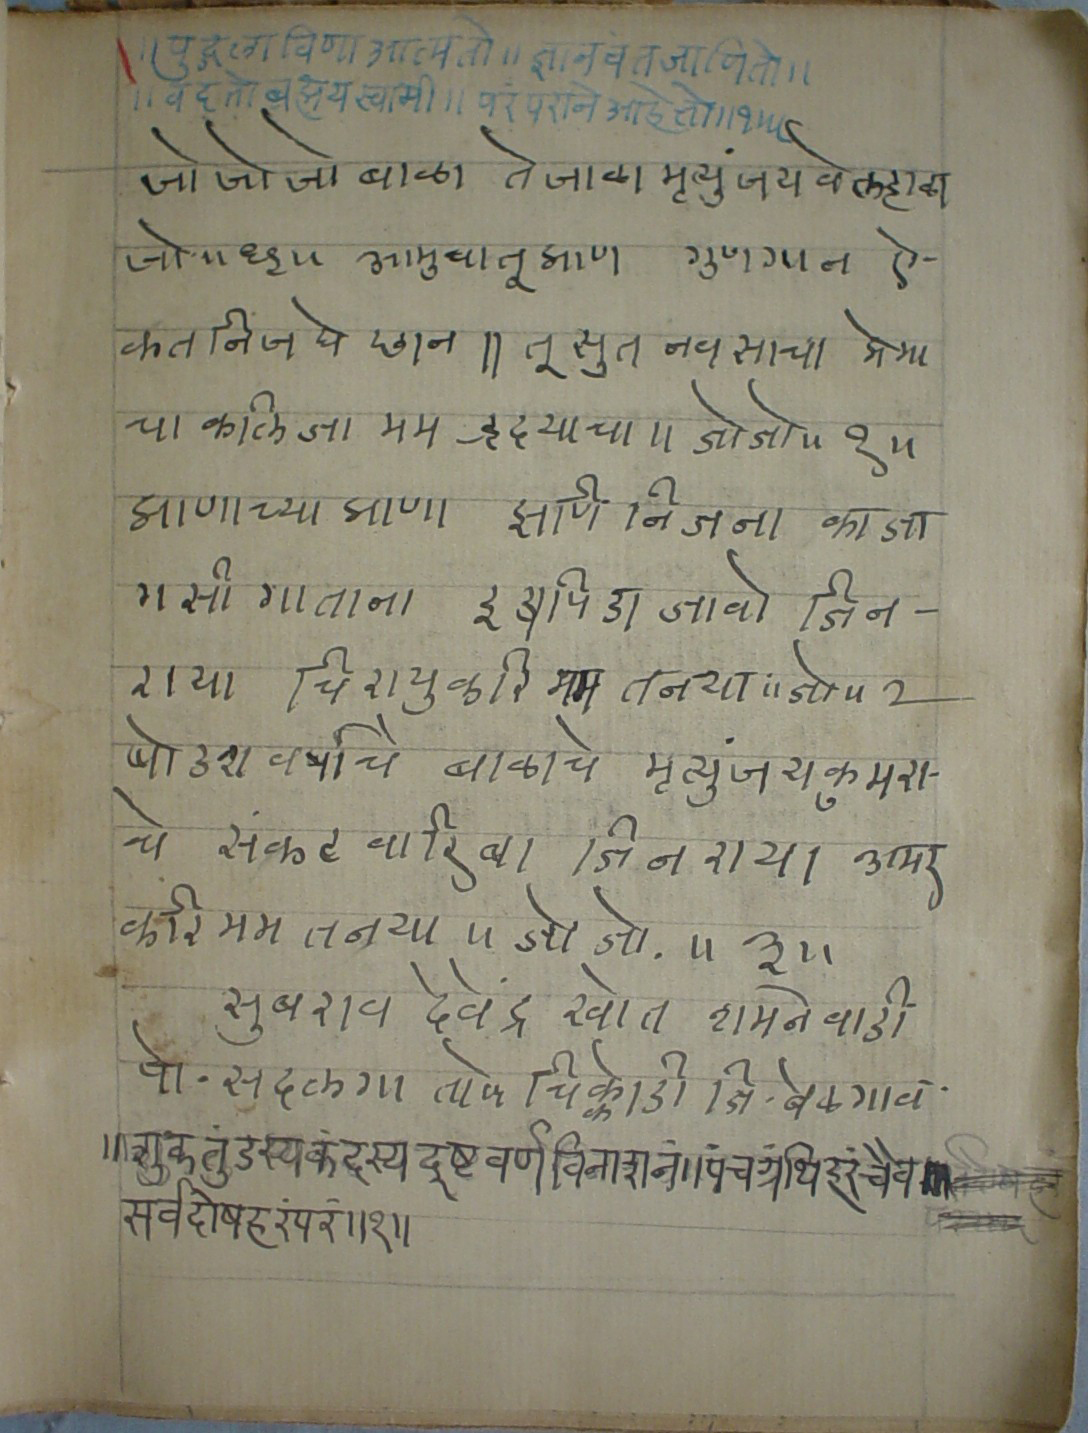 ॥पुद्गला विणा आत्म तो॥ ज्ञानवंत जाणितो॥
॥वदतो अक्षय स्वामी॥ परंपराने आहे तो॥१॥
जो जो जो बाळा तेजाळा मृत्युंजय वेल्हाळा
जो॥धृ॥ आमुचा तू प्राण गुणगान ऐ-
कत निज घे छान॥ तू सुत नवसाचा प्रेमा
चा कलिजा मम हृदयाचा॥ जोजो॥१॥
प्राणाच्या प्राणा झणि निजना का जा
गसी गाताना इडापिडा जावो जिन-
राया चिरायु करि मम तनया॥जो॥२
षोडश वर्षाचे बाळाचे मृत्युंजयकुमरा-
चे संकट वारि बा जिनराया अमर
करि मम तनया॥ जो जो.॥३॥
सुबराव देवेंद्र खोत शमनेवाडी
पो. सदलगा ता॥ चिक्कोडी जि. बेळगावं.
॥शुकतुंडस्यकंदस्य दृष्ट वर्ण विनाशनं॥पंचग्रंथिहरंचैव
सर्वदोषहरंपरं॥१॥